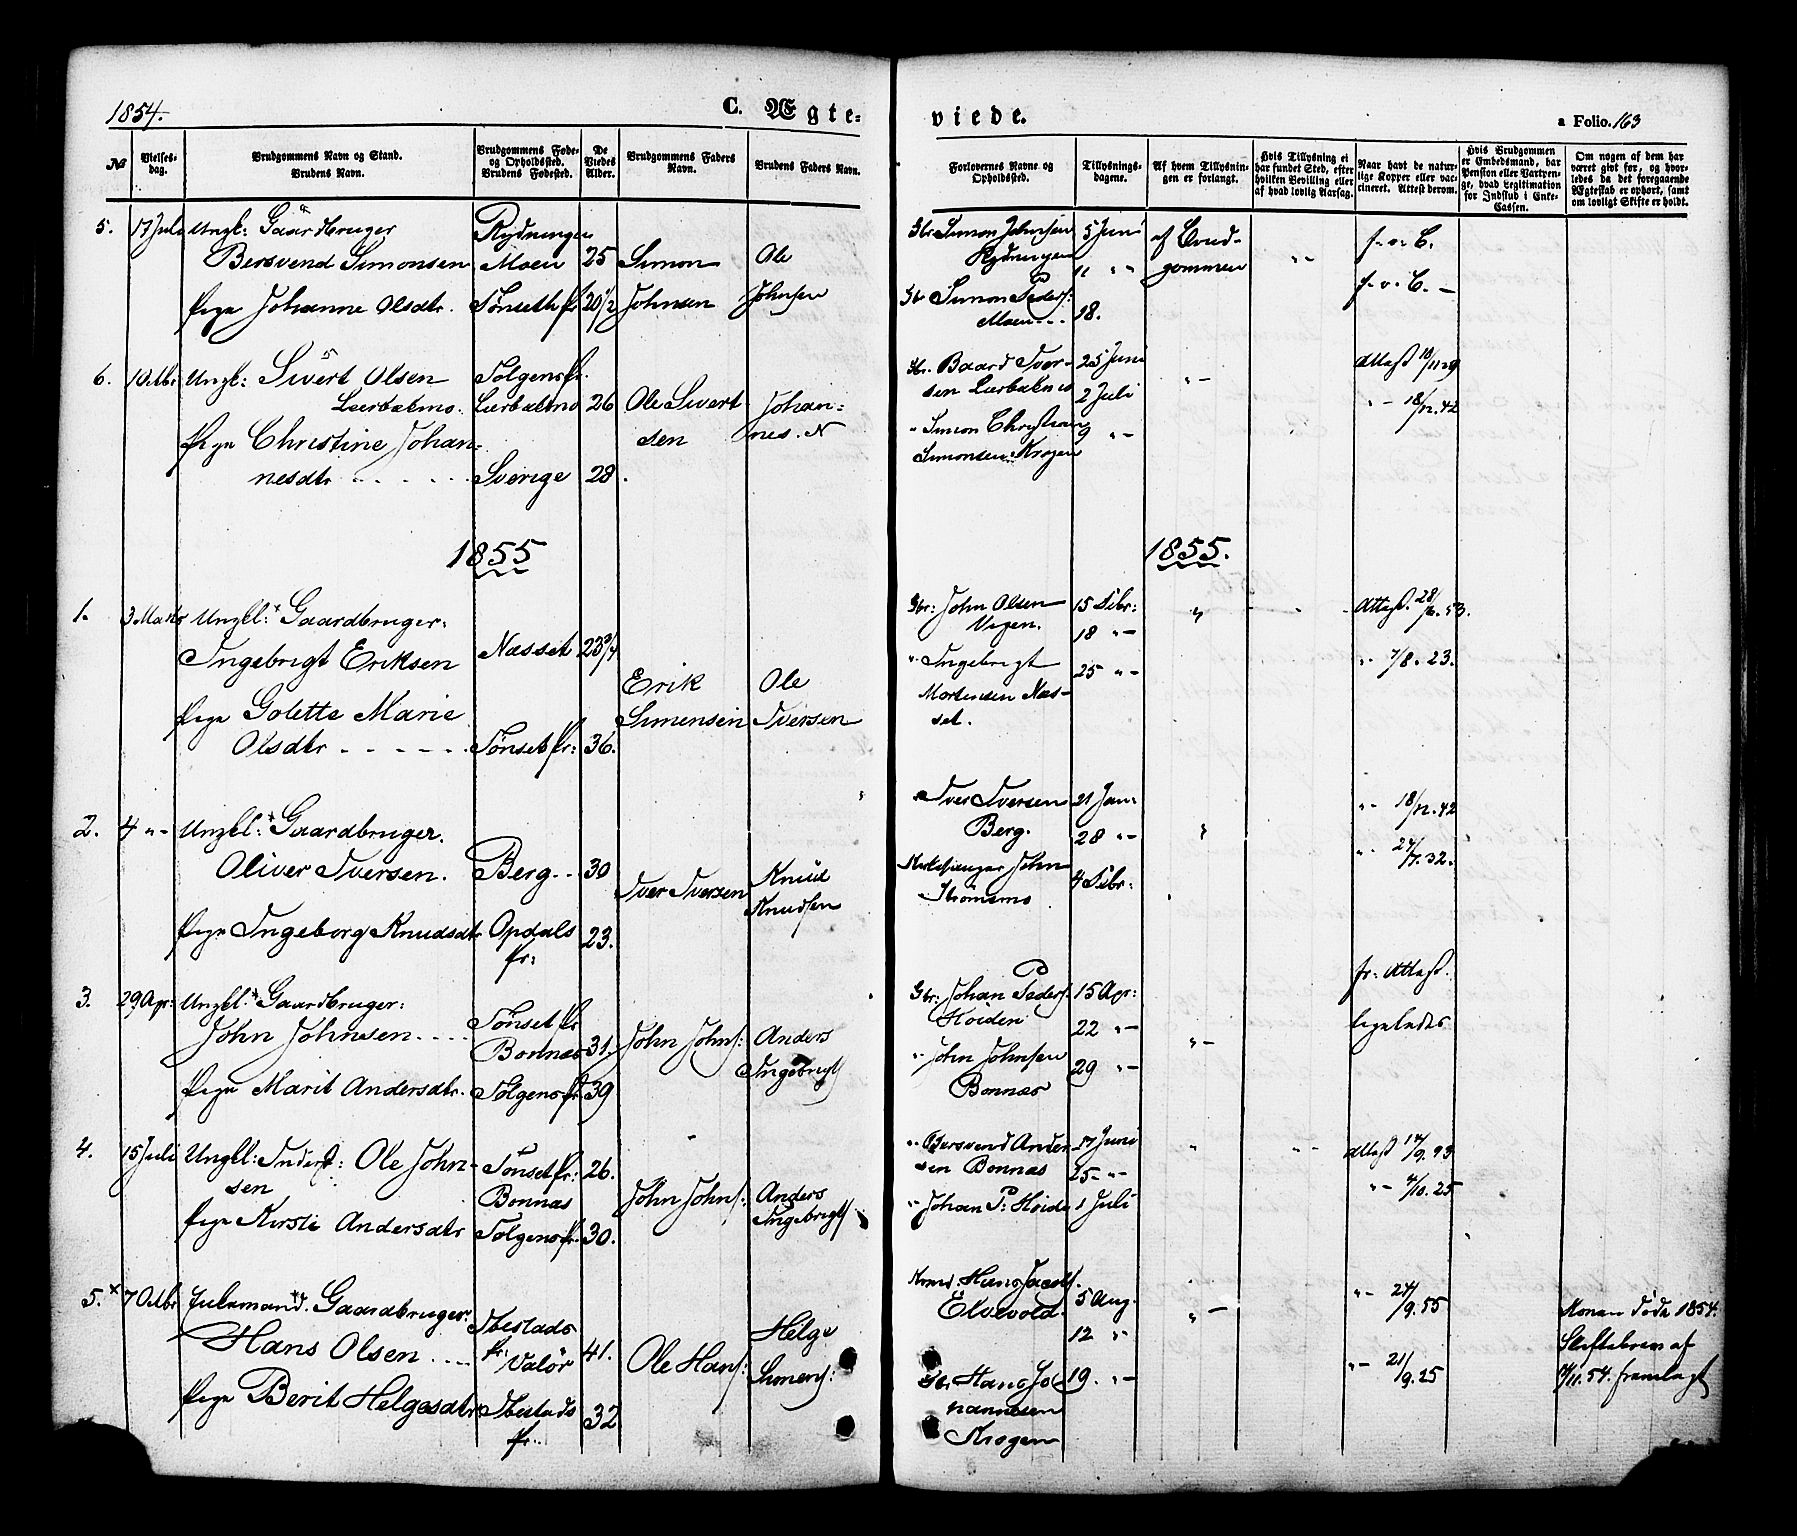 1854.
C. Ægte-
viede.
a Folio. 163
No
Vielses-
dag.
Brudgommens Navn og Stand.
Brudens Navn.
Brudgommens Føde-
og Opholdssted.
Brudens Fødested.
De
Viedes
Alder.
Brudgommens Faders
Navn.
Brudens Faders Navn.
Forlovernes Navne og
Opholdssted.
Tillysnings-
dagene.
Af hvem Tillysnin-
gen er forlangt.
Hvis Tillysning ei
har fundet Sted, efter
hvilken Bevilling eller
af hvad lovlig Aarsag.
Naar havt de natur-
lige Kopper eller vac-
cineret. Attest derom.
Hvis Brudgommen
er Embedsmand, har
Pension eller Vartpen-
ge, hvad Legitimation
for Indskud i Enke-
Cassen.
Om nogen af dem har
været gift før, og hvor-
ledes da det foregaaende
Ægteskab er ophørt, samt
om lovligt Skifte er holdt.
5. 17 Juli Ungk: Gaardbruger
Bersvend Simonsen
Pige Johanne Olsdtr.
Rydningen
Moen 25
Tønseth Pr 20 1/2
Simon
Johnsen
Ole
Johnsen
Gbr Simon Johnsen
Rydningen
Gbr Simon Peders:
Moen
5 Juni
11 "-
18.
af Brud-
gommen
"-
f. v. C.
f. v. C. -
6. 1 Octbr Ungk: Sivert Olsen
Lærbækmo.
Pige Christine Johan-
nesdtr
Tolgens Pr.
Lærbækmo 26
Sverige 28.
Ole Sivert
sen
Johan-
nes. N
Gbr. Baard Iver-
sen Lærbækmo
" Simon Christian
Simonsen Krogen
25 Juni
2 Juli
9 "-
"-
Attest
"- 18/12.42
1855
1855.
1. 3 Marts Ungkl: Gaardbruger:
Ingebrigt Eriksen
Pige Golette Marie
Olsdtr
Næsset 23 3/4
Tønset Pr: 36.
Erik
Simensen
Ole
Iversen
Gbr: John Olsen
Vigen.
"- Ingebrigt
Mortensen Næs-
set.
15 Febr:
18 "-
25 "-
"
"
Attest. 28/6.53.
"- 7/8.23.
2. 4 "- Ungkl: Gaardbruger.
Oliver Iversen.
Pige Ingeborg Knudsdtr
Berg 30
Opdals
Pr: 23.
Iver Iversen
Knud
Knudsen
Iver Iversen
Berg.
Kirkesanger John
Strömsmo
21 Jan:
28 "-
4 Febr:
"
"- 18/12.42
"- 24/7.32.
3. 29 Apr: Ungkl: Gaardbruger:
John Johnsen
Pige Marit Andersdtr.
Tønset Pr
Bonnæs 31.
Tolgens Pr 39
John Johns:
Anders
Ingebrigts
Gbr: Johan Peders:
Hoiden
"- John Johnsen
Bonnæs
15 Apr:
22 "-
29 "-
"-
fr. Attest.
ligeledes
4. 15 Juli Ungkl: Inderst: Ole John-
sen
Pige Kirsti Andersdtr
Tønset Pr: 26.
Bonnæs
Tolgens Pr. 30.
John Johns:
Anders
Ingebrigts
"- Bersvend Ander-
sen Bonnæs
"- Johan P: Hoide
17 Juni
25 "-
1 Juli
"
"-
Attest
"- 4/10.25
5. 7 Octbr Enkemand. Gaardbruger:
Hans Olsen
Pige Berit Helgesdtr
Ibestads
Pr. Valör 41.
Ibestads
Pr. 32
Ole Hans:
Helge
Simens:
Hans Jacobs.
Elvevold
Gbr. Hans Jo-
hannesen
Krogen
5 Aug.
12 "
19. "-
"-
"- 24/9.55
"- 21/9.25
Konen døde 1854.
Skiftebrev af
/11.54. fremlagt